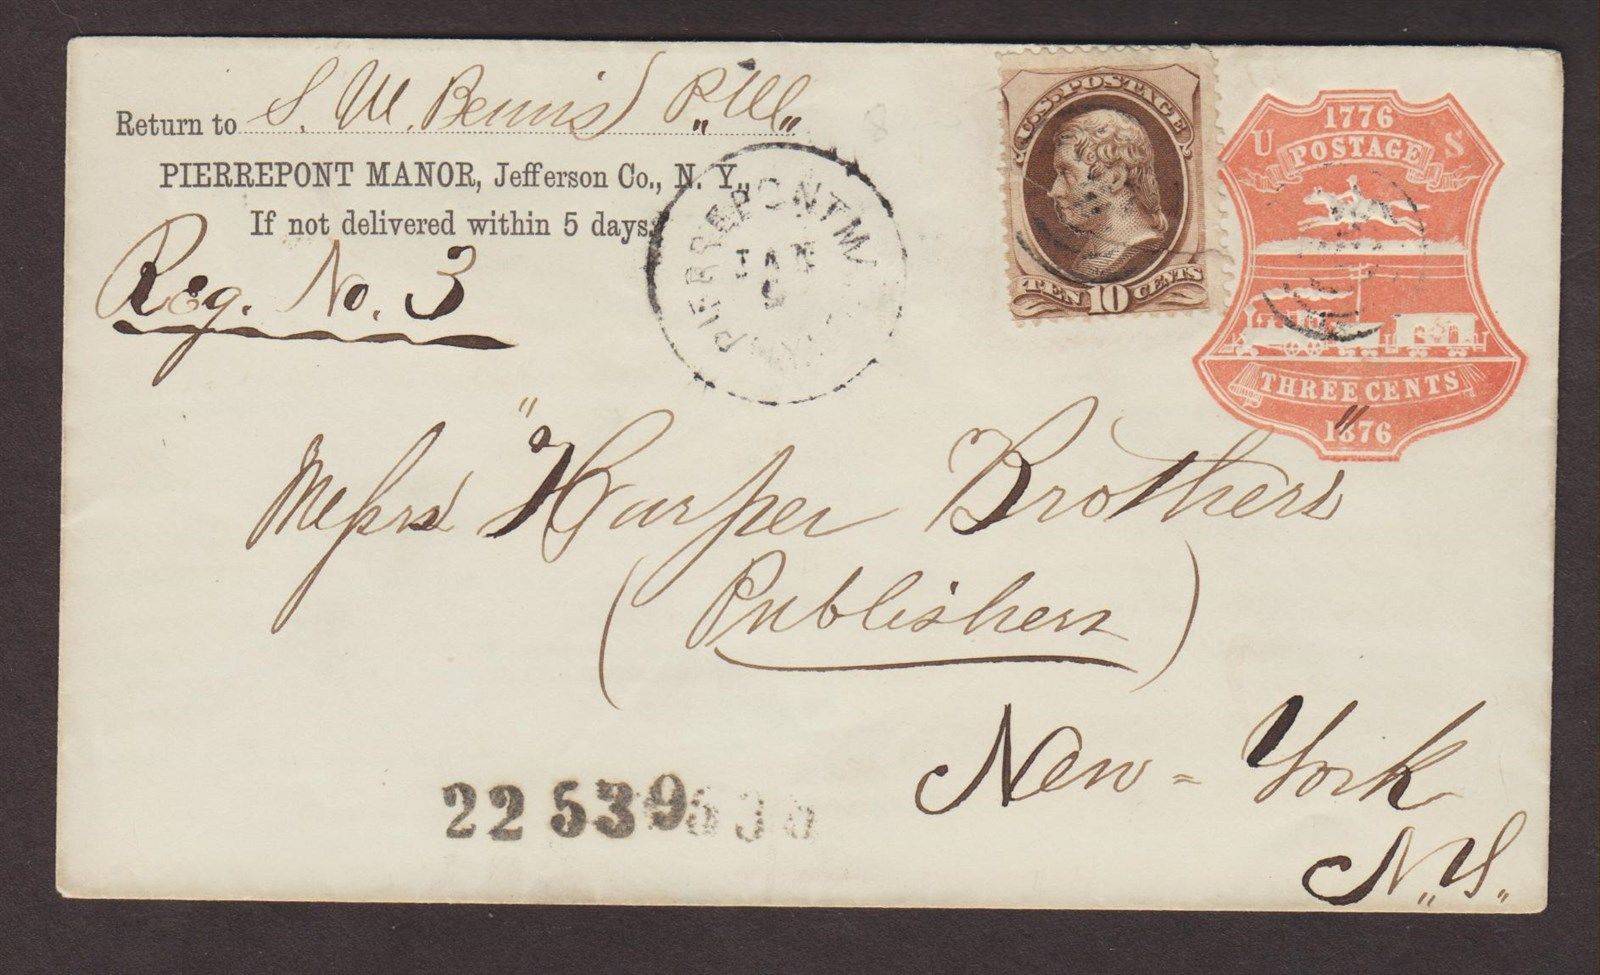 Return to S. W. Bemis P.M.
PIERREPONT MANOR, Jefferson Co., N. Y.,
If not delivered within 5 days.
Reg. No. 3
PIERREPONT M
JAN
U.S. POSTAGE
TEN 10 CENTS
1776
U S
POSTAGE
THREE CENTS
1876
Messrs "Harper Brothers"
(Publishers)
New=York
N.Y.
22539